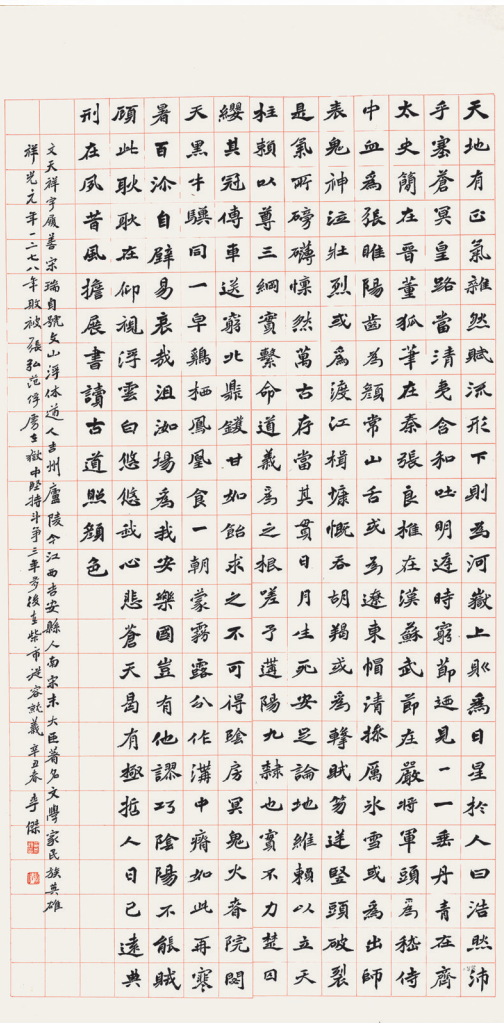 天地有正氣雜然賦流形下則為河嶽上則為日星於人曰浩然沛
乎塞蒼冥皇路當清夷含和吐明庭時窮節迺見一一垂丹青在齊
太史簡在晉董狐筆在秦張良椎在漢蘇武節在嚴將軍頭為嵇侍
中血為張睢陽齒為顏常山舌或為遼東帽清操厲冰雪或為出師
表鬼神泣壯烈或為渡江楫慷慨吞胡羯或為擊賊笏逆豎頭破裂
是氣所磅礴懍然萬古存當其貫日月生死安足論地維賴以立天
柱賴以尊三綱實繫命道義為之根嗟予遘陽九隸也實不力楚囚
纓其冠傳車送窮北鼎鑊甘如飴求之不可得陰房冥鬼火春院閟
天黑牛驥同一皁鷄栖鳳凰食一朝蒙霧露分作溝中瘠如此再寒
暑百沴自辟易哀哉沮洳場為我安樂國豈有他謬巧陰陽不能賊
顧此耿耿在仰視浮雲白悠悠我心悲蒼天曷有極哲人日已遠典
刑在夙昔風擔展書讀古道照顏色
文天祥字履善宋瑞自號文山浮休道人吉州廬陵今江西吉安縣人南宋末大臣著名文學家民族英雄
祥光元年一二七八年敗被張弘范俘虜在獄中堅持斗爭三年多後在柴市從容就義辛丑春李傑